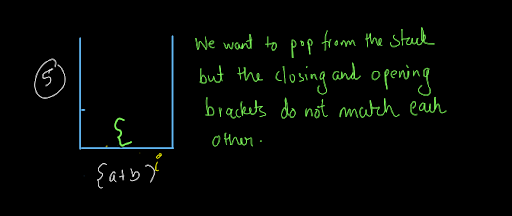 We want to pop from the stack
but the closing and opening
5
brackets do not match each
other.
{
{a+b)i